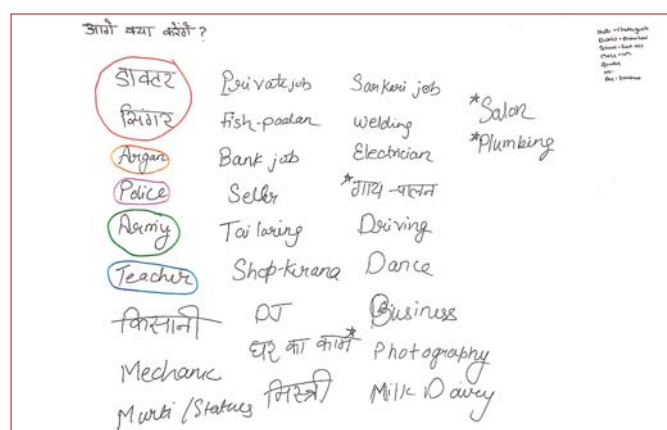 आगे क्या करेंगे?
डाक्टर
सिंगर
Argan
Police
Army
Teacher
किसानी
Mechanic
Murti/Statues
Private job
Fish-paalan
Bank job
Seller
Tailoring
Shop-kirana
DJ
घर का काम*
मिस्त्री
Sarkari job
Welding
Electrician
*गाय-पालन
Driving
Dance
Business
Photography
Milk Dairy
*Salon
*Plumbing